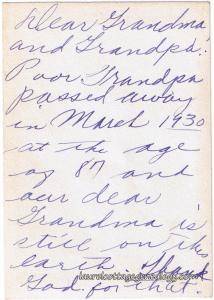 Dear Grandma
and Grandpa:
Poor Grandpa
passed away
in March 1930
at the age
of 87 and
our dear
Grandma is
still on this
earth Thank
God for that.